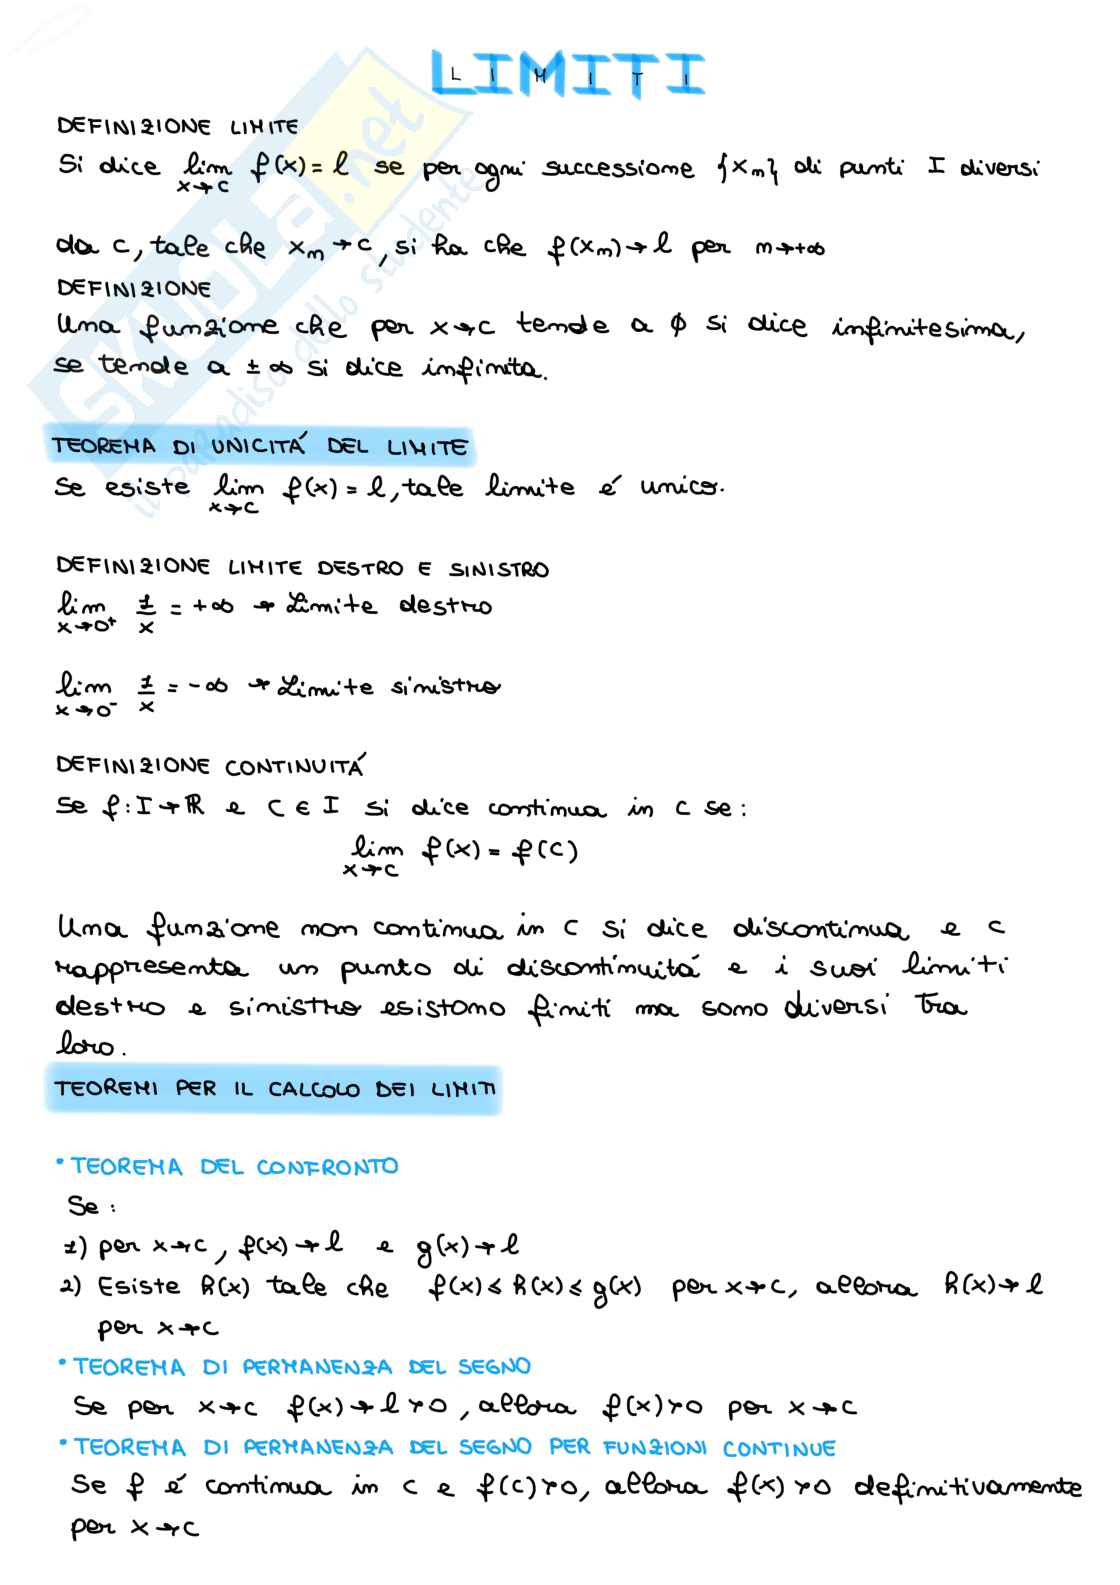 LIMITI
DEFINIZIONE LIMITE
Si dice lim x→c f(x) = l se per ogni successione {xn} di punti I diversi
da c, tale che xn → c, si ha che f(xn) → l per n→+∞
DEFINIZIONE
Una funzione che per x→c tende a ϕ si dice infinitesima,
se tende a ±∞ si dice infinita.
TEOREMA DI UNICITÁ DEL LIMITE
Se esiste lim x→c f(x) = l, tale limite é unico.
DEFINIZIONE LIMITE DESTRO E SINISTRO
lim x→0⁺ 1/x = +∞ → Limite destro
lim x→0⁻ 1/x = -∞ → Limite sinistro
DEFINIZIONE CONTINUITÁ
Se f: I → ℝ e c ∈ I si dice continua in c se:
lim x→c f(x) = f(c)
Una funzione non continua in c si dice discontinua e c
rappresenta un punto di discontinuitá e i suoi limiti
destro e sinistro esistono finiti ma sono diversi tra
loro.
TEOREMI PER IL CALCOLO DEI LIMITI
• TEOREMA DEL CONFRONTO
Se:
1) per x→c, f(x) → l e g(x) → l
2) Esiste h(x) tale che f(x) ≤ h(x) ≤ g(x) per x→c, allora h(x) → l
per x→c
• TEOREMA DI PERMANENZA DEL SEGNO
Se per x→c f(x) → l > 0, allora f(x) > 0 per x→c
• TEOREMA DI PERMANENZA DEL SEGNO PER FUNZIONI CONTINUE
Se f é continua in c e f(c) > 0, allora f(x) > 0 definitivamente
per x→c
SKUOLA.net
il paradiso dello studente